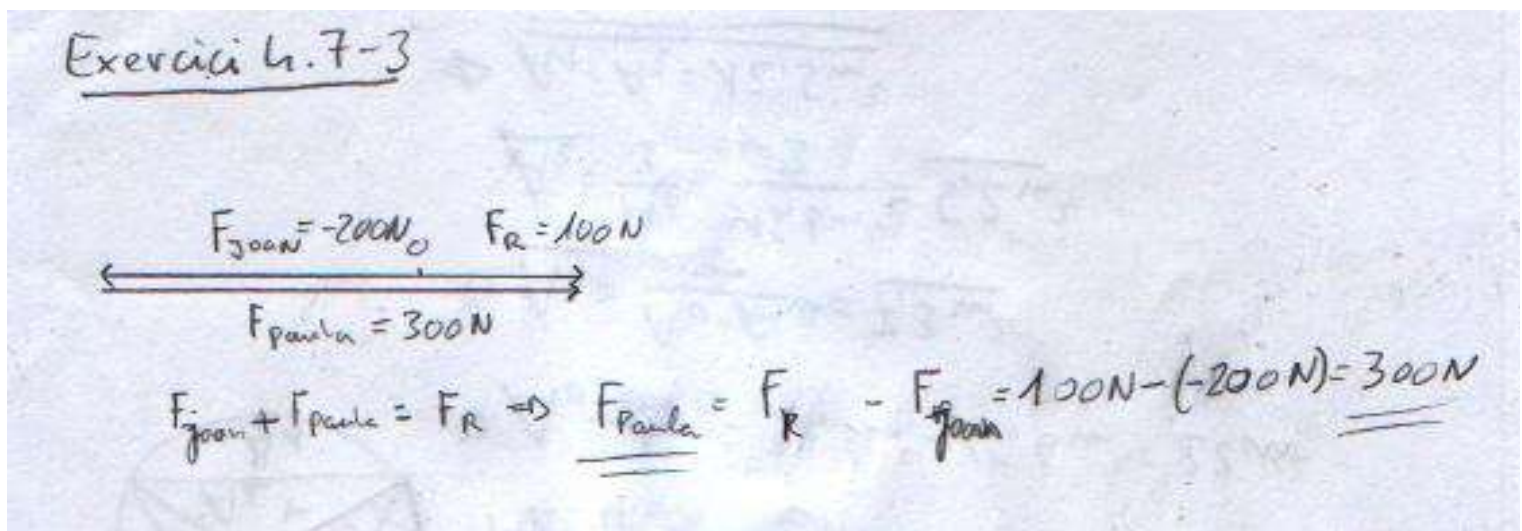 Exercici 4.7-3
F_Joan = -200N O F_R = 100N
F_paula = 300N
F_joan + F_Paula = F_R => F_Paula = F_R - F_Joan = 100N - (-200N) = 300N